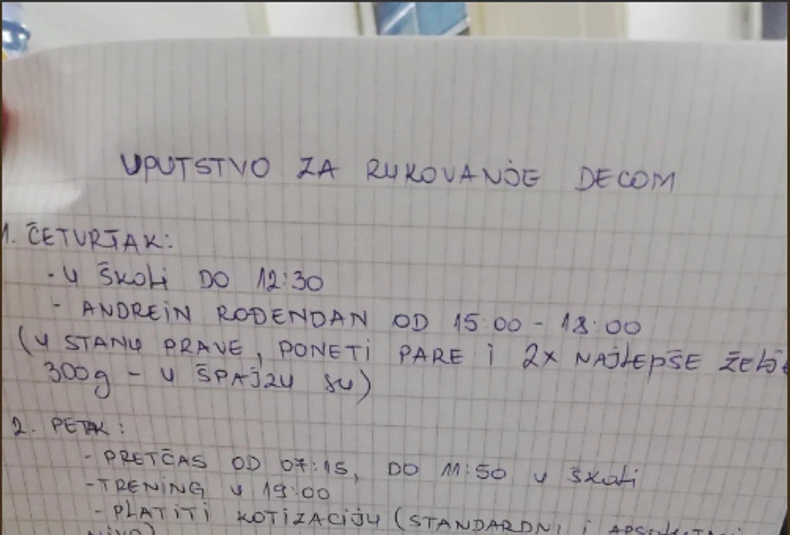 UPUTSTVO ZA RUKOVANJE DECOM
1. ČETVRTAK:
- U ŠKOLI DO 12:30
- ANDREIN ROĐENDAN OD 15:00 - 18:00
(U STANU PRAVE, PONETI PARE I 2X NAJLEPŠE
300g - U ŠPAJZU SU)
2. PETAK:
- PRETČAS OD 07:15, DO 11:50 U ŠKOLI
- TRENING U 19:00
- PLATITI KOTIZACIJU (STANDARDNI I